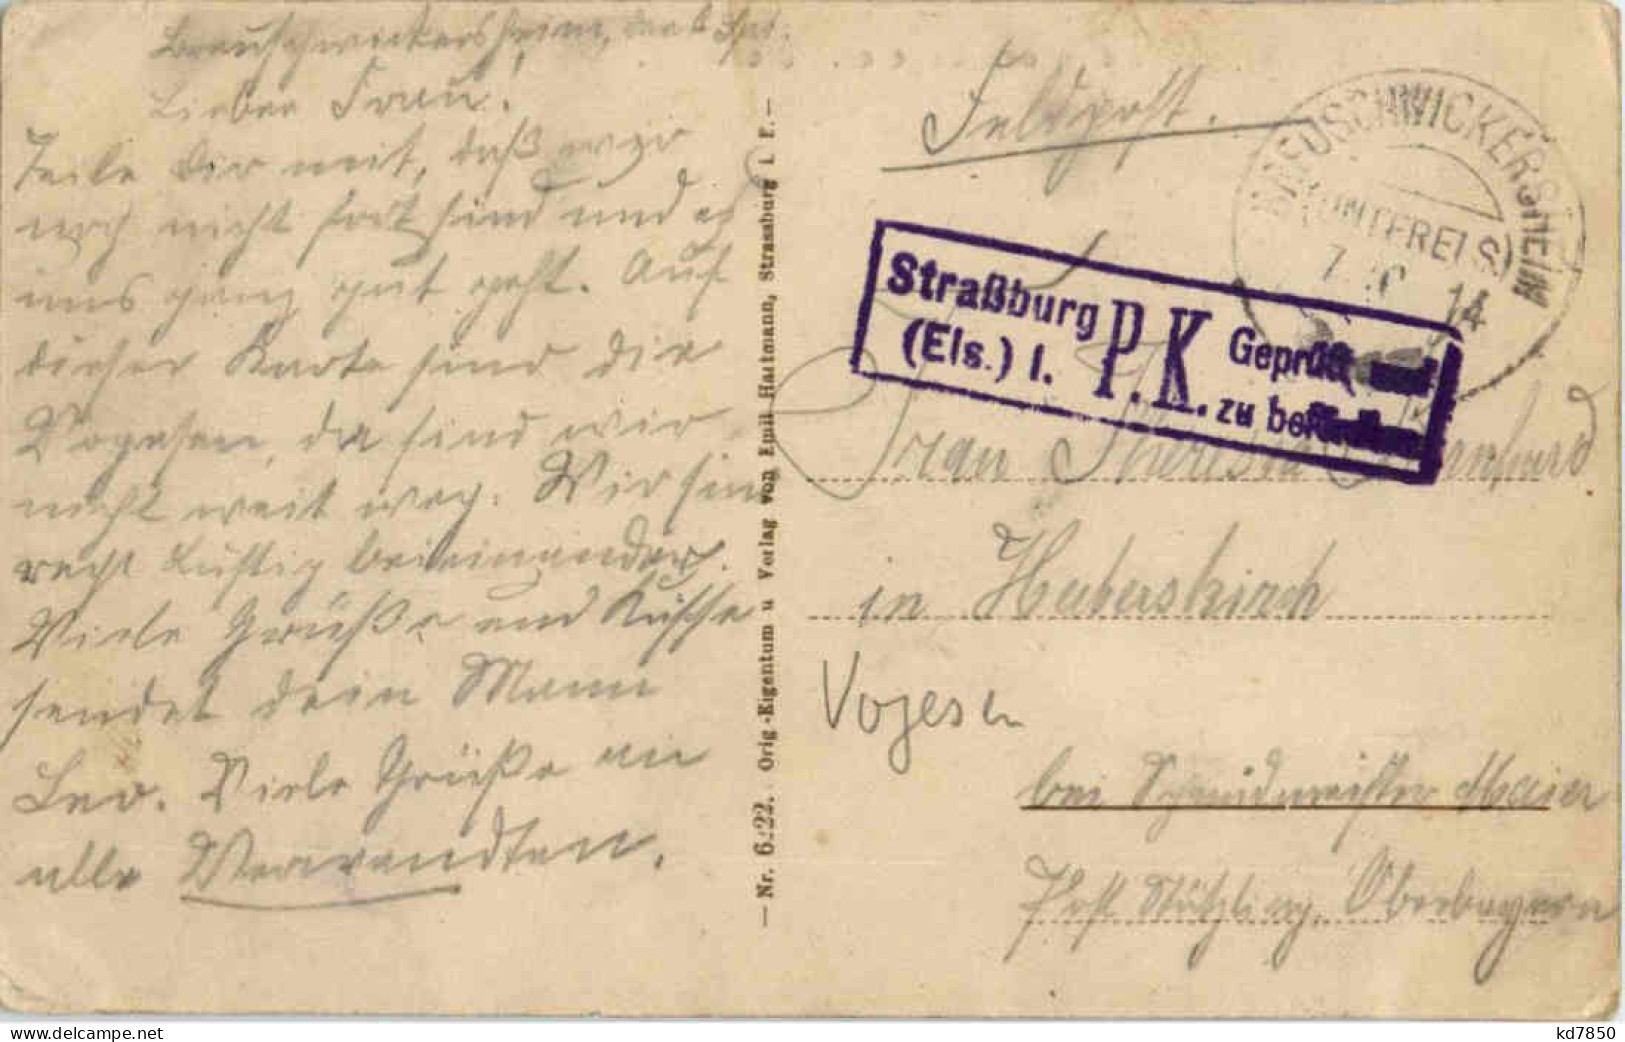 Breuschwickersheim, den 6.
Liebe Frau!
Teile dir mit, daß wir
noch nicht fort sind und es
uns ganz gut geht. Auf
dieser Karte sind die
Vogesen, da sind wir
nicht weit weg. Wir sind
recht lustig beieinander.
Viele Grüße und Küsse
sendet dein Mann
Leo. Viele Grüße an
alle Verwandten.
— Nr. 6522. Orig.-Eigentum u Verlag von Emil Hartmann, Strassburg i. E. —
Feldpost.
BREUSCHWICKERSHEIM
(UNTERELS)
7 14
Straßburg
(Els.) I.
P.K.
Geprüft und
zu befördern
Frau Theresia
in Huberskirch
Vogesen
bei Schneidmeister Maier
Post Stützling, Oberbayern
www.delcampe.net
kd7850